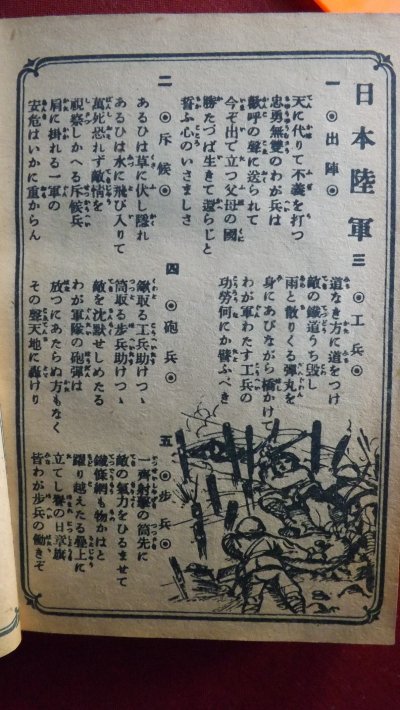 日本陸軍
一 ◉出陣◉
天に代りて不義を打つ
忠勇無雙のわが兵は
歡呼の聲に送られて
今ぞ出で立つ父母の國
勝たづば生きて還らじと
誓ふ心のいさましさ
二 ◉斥候◉
あるひは草に伏し隱れ
あるひは水に飛び入りて
萬死恐れず敵情を
視察しかへる斥候兵
肩に掛れる一軍の
安危はいかに重からん
三 ◉工兵◉
道なき方に道をつけ
敵の鐵道うち毀し
雨と散りくる彈丸を
身にあびながら橋かけて
わが軍わたす工兵の
功勞何にか譬ふべき
四 ◉砲兵◉
鍬取る工兵助けつゝ
筒取る步兵助けつゝ
敵を沈默せしめたる
わが軍隊の砲彈は
放つにあたらぬ方もなく
その聲天地に轟けり
五 ◉步兵◉
一齊射擊の筒先に
敵の氣力をひるませて
鐵條網も物かはと
躍り越えたる壘上に
立てし譽の日章旗
皆わが步兵の働きぞ